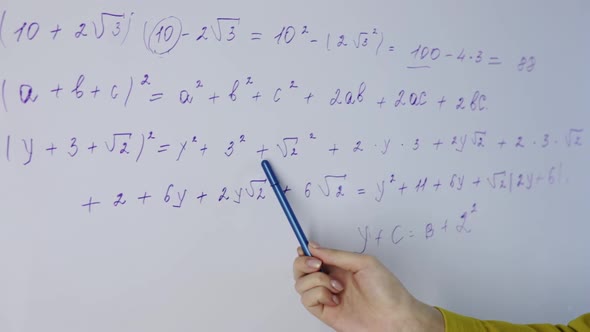 (10 + 2√3) (10 - 2√3) = 10² - (2√3²) = 100 - 4·3 = 88
(a + b + c)² = a² + b² + c² + 2ab + 2ac + 2bc
(y + 3 + √2)² = y² + 3² + √2² + 2·y·3 + 2y√2 + 2·3√2
+ 2 + 6y + 2y√2 + 6√2 = y² + 11 + 6y + √2(2y+6).
y + c = B + 2²